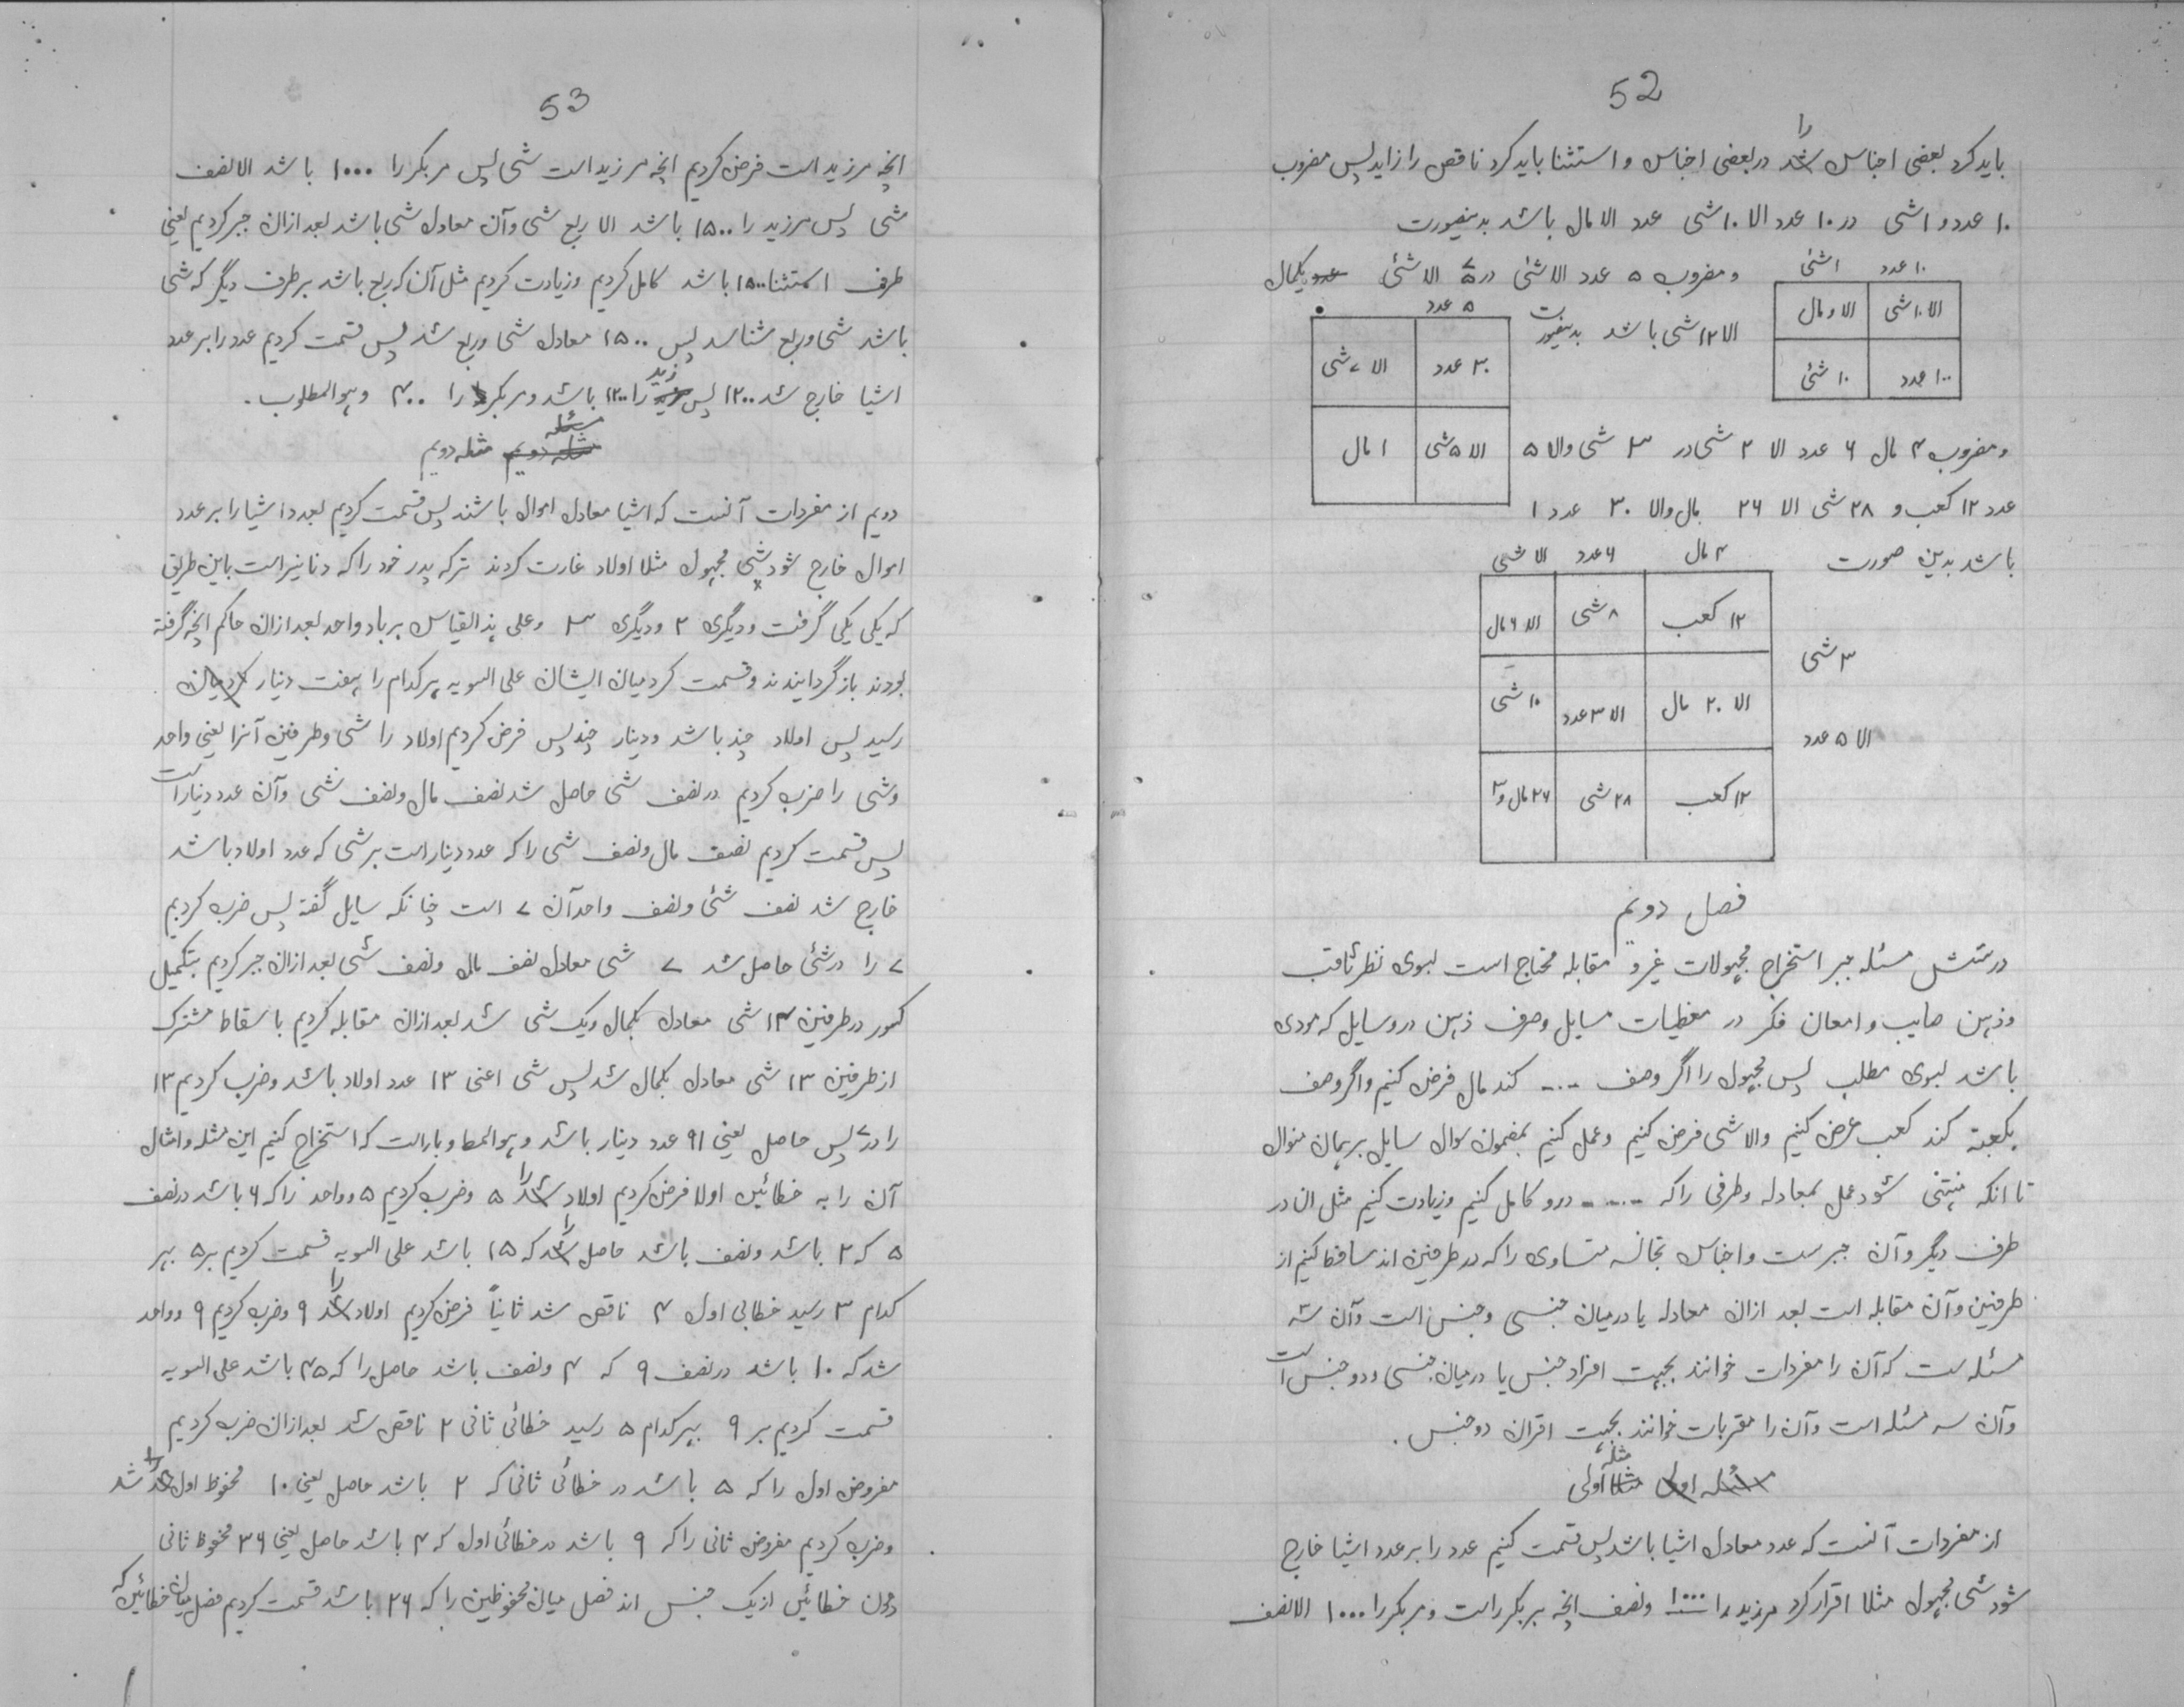 52
باید کرد بعضی اجناس را در بعضی اجناس و استثنا باید کرد ناقص را زاید پس مضروب
۱۰ عدد و ۱ شی در ۱۰ عدد الا ۱۰ شی عدد الا مال باشد بدینصورت
۱۰ عدد ۱ شئی
الا ۱۰ شی الا و مال
۱۰۰ عدد ۱۰ شئی
و مضروب ۵ عدد الا شئی در ۷ الا شئی یکمال
الا ۱۲ شی باشد بدینصورت
۵ عدد
۳۰ عدد الا ۷ شی
الا ۵ شی ۱ مال
و مضروب ۴ مال ۶ عدد الا ۲ شی در ۳ شی والا ۵
عدد ۱۲ کعب و ۲۸ شی الا ۲۶ مال والا ۳۰ عدد ۱
باشد بدین صورت
۴ مال ۶ عدد الا شی
۱۲ کعب ۸ شی الا ۶ مال
۳ شی
الا ۲۰ مال الا ۳ عدد ۱۰ شی
الا ۵ عدد
۱۲ کعب ۲۸ شی ۲۶ مال و ۳
فصل دویم
در شش مسئله جبر استخراج مجهولات غیر و مقابله محتاج است بسوی نظر ثاقب
و ذهن صایب و امعان فکر در معطیات مسایل و صرف ذهن در وسایل که مودی
باشد بسوی مطلب پس مجهول را اگر وصف ---- کند مال فرض کنیم و اگر وصف
بکعبة کند کعب عرض کنیم والا شی فرض کنیم و عمل کنیم بمضمون سوال سایل بر همان منوال
تا انکه منتهی شود عمل بمعادله و طرفی را که ---- درو کامل کنیم و زیادت کنیم مثل ان در
طرف دیگر و آن جبرست و اجناس تجانسه متساوی را که در طرفین اند ساقط کنیم از
طرفین و آن مقابله است بعد ازان معادله یا درمیان جنسی و جنس است و آن سه
مسئله ست که آن را مفردات خوانند بجهت افراد جنس یا درمیان جنسی و دو جنس است
و آن سه مسئله است و آن را مقربات خوانند بجهت اقران دو جنس .
مثله اولی
از مفردات آنست که عدد معادل اشیا باشد پس قسمت کنیم عدد را بر عدد اشیا خارج
شود شی مجهول مثلا اقرار کرد مر زید را ۱۰۰۰ و نصف انچه بر بکر راست و مر بکر را ۱۰۰۰ الا نصف
53
انچه مر زید است فرض کردیم انچه مر زید است شی پس مر بکر را ۱۰۰۰ باشد الا نصف
شی پس مر زید را ۱۵۰۰ باشد الا ربع شی و آن معادل شی باشد بعد ازان جبر کردیم یعنی
طرف استثنا ۱۵۰۰ باشد کامل کردیم و زیادت کردیم مثل آن که ربع باشد بر طرف دیگر که شی
باشد شی و ربع شناسد پس ۱۵۰۰ معادل شی و ربع شد پس قسمت کردیم عدد را بر عدد
اشیا خارج شد ۱۲۰۰ پس زید را ۱۲۰۰ باشد و مر بکر را ۴۰۰ و هو المطلوب .
مثله دویم
دویم از مفردات آنست که اشیا معادل اموال باشند پس قسمت کردیم بعدد اشیا را بر عدد
اموال خارج شود شی مجهول مثلا اولاد غارت کردند ترکه پدر خود را که دنانیر است باین طریق
که یکی یکی گرفت و دیگری ۲ و دیگری ۳ و علی هذالقیاس بر باد واحد بعد ازان حاکم انچه گرفته
بودند باز گردانیدند و قسمت کرد میان ایشان علی السویه هر کدام را هفت دینار
رسید پس اولاد چند باشد و دینار چند پس فرض کردیم اولاد را شی و طرفین آنرا یعنی واحد
و شی را ضرب کردیم در نصف شی حاصل شد نصف مال و نصف شی و آن عدد دینار است
پس قسمت کردیم نصف مال و نصف شی را که عدد دینار است بر شی که عدد اولاد باشد
خارج شد نصف شئی و نصف واحد آن ۷ است چنانکه سایل گفته پس ضرب کردیم
۷ را در شئی حاصل شد ۷ شی معادل نصف مال و نصف شی بعد ازان جبر کردیم بتکمیل
کسور در طرفین ۱۴ شی معادل یکمال و یک شی شد بعد ازان مقابله کردیم باسقاط مشترک
از طرفین ۱۳ شی معادل یکمال شد پس شی اعنی ۱۳ عدد اولاد باشد و ضرب کردیم ۱۳
را در ۷ پس حاصل یعنی ۹۱ عدد دینار باشد و هو المط و باراست که استخراج کنیم این مثله و امثال
آن را به خطائین اولا فرض کردیم اولاد را ۵ و ضرب کردیم ۵ و واحد را که ۶ باشد در نصف
۵ که ۲ باشد و نصف باشد حاصل را که ۱۵ باشد علی السویه قسمت کردیم بر ۵ بهر
کدام ۳ رسید خطایی اول ۴ ناقص شد ثانیاً فرض کردیم اولاد را ۹ و ضرب کردیم ۹ و واحد
شد که ۱۰ باشد در نصف ۹ که ۴ و نصف باشد حاصل را که ۴۵ باشد علی السویه
قسمت کردیم بر ۹ بهر کدام ۵ رسید خطائی ثانی ۲ ناقص شد بعد ازان ضرب کردیم
مفروض اول را که ۵ باشد در خطائی ثانی که ۲ باشد حاصل یعنی ۱۰ محفوظ اول شد
و ضرب کردیم مفروض ثانی را که ۹ باشد در خطائی اول که ۴ باشد حاصل یعنی ۳۶ محفوظ ثانی
و چون خطائین از یک جنس اند فصل میان محفوظین را که ۲۶ باشد قسمت کردیم فضل میان خطائین که